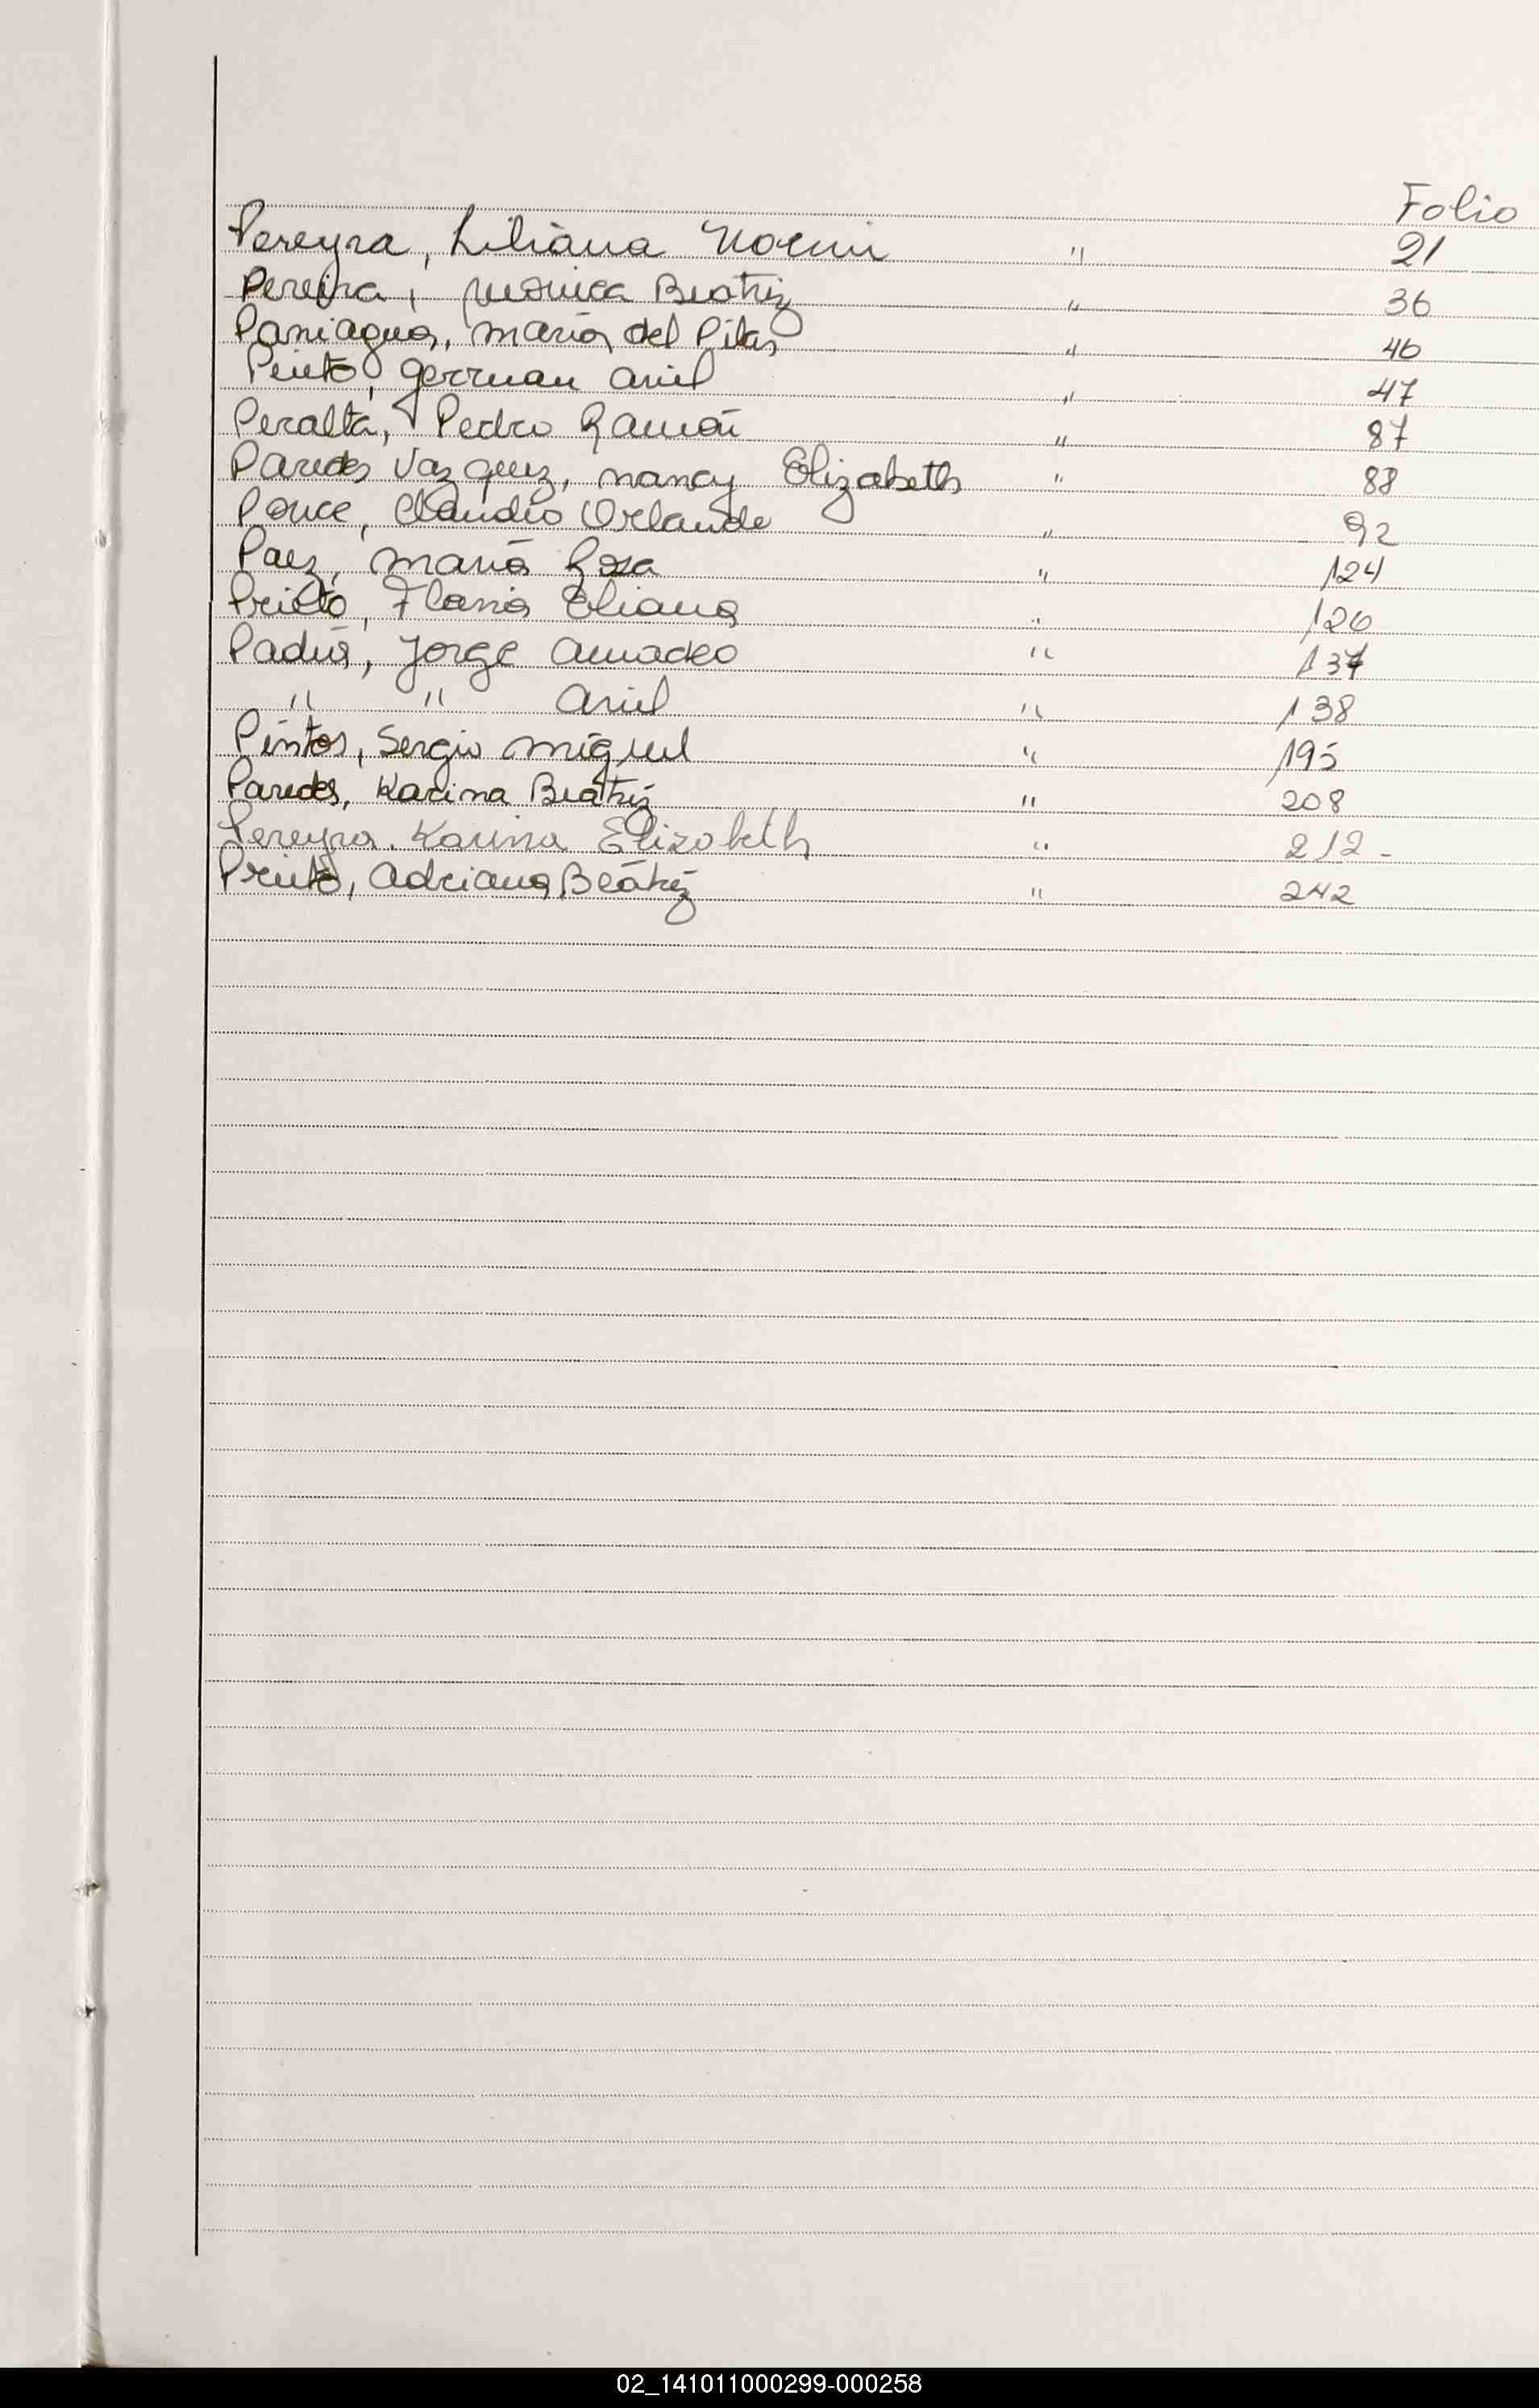 Folio
Pereyra, Liliana Noemi " 21
Pereira, Monica Beatriz " 36
Paniagua, Maria del Pilar " 40
Pinto, German Ariel " 47
Peralta, Pedro Ramón " 87
Paredes Vazquez, Nancy Elizabeth " 88
Ponce, Claudio Orlando " 92
Paez, Maria Rosa " 124
Prieto, Flavia Eliana " 126
Padua, Jorge Amadeo " 137
" " Ariel " 138
Pintos, Sergio Miguel " 195
Paredes, Karina Beatriz " 208
Pereyra. Karina Elizabeth " 212 -
Prieto, Adriana Beatriz " 242
02_141011000299-000258